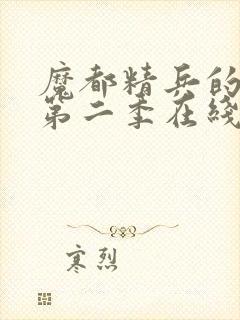 魔都精兵的
第二季在线
寒烈